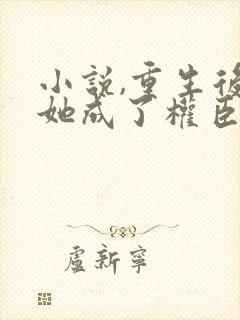 小說,重生後
她成了權臣
盧新寧